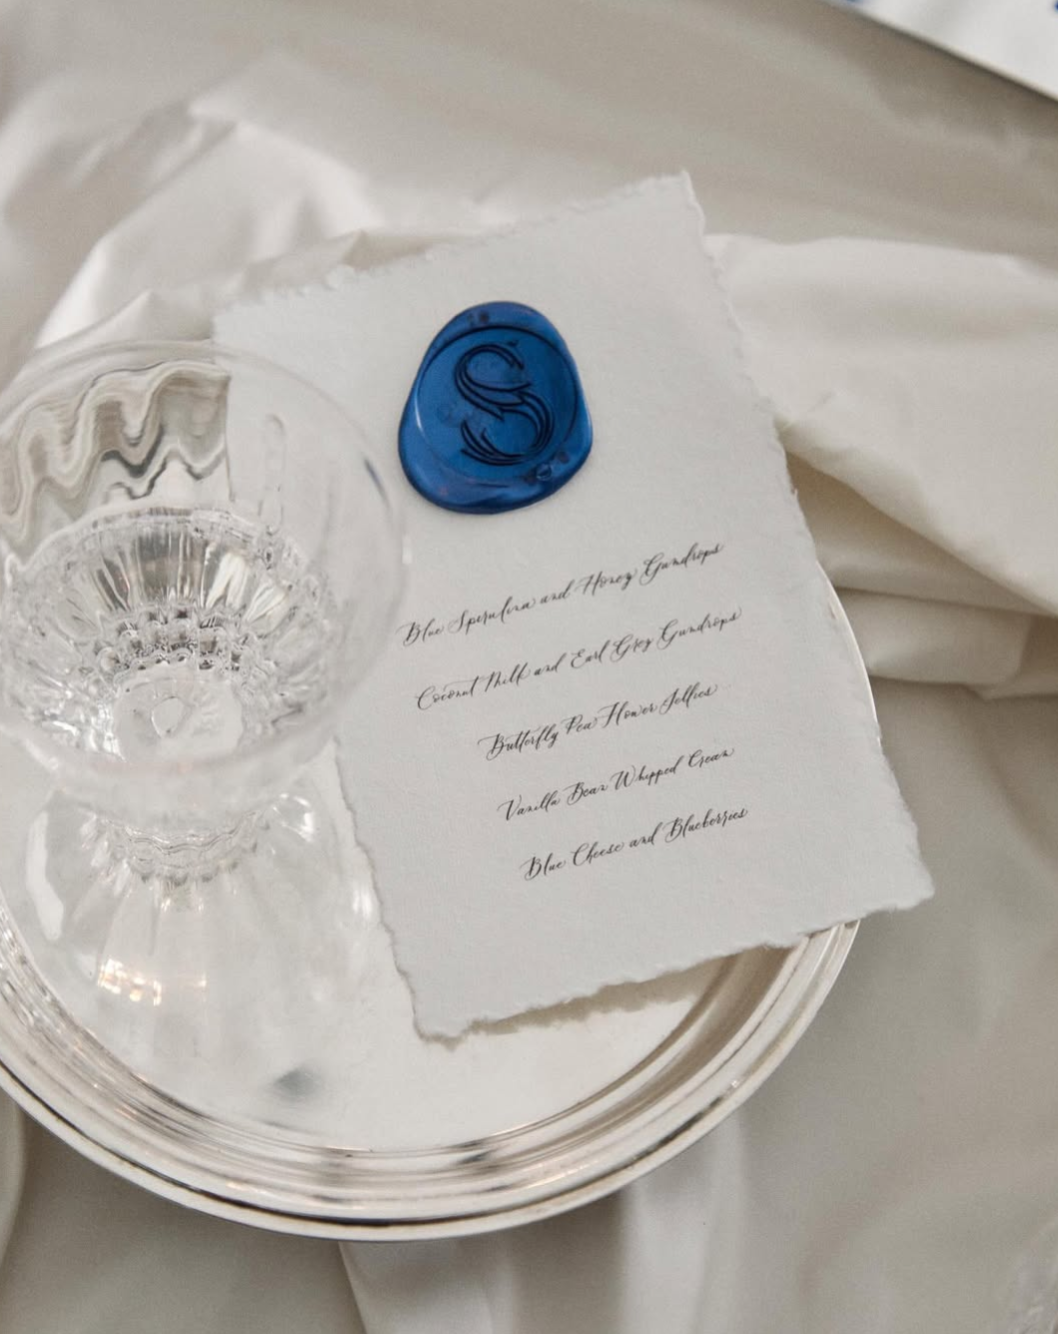 S
Blue Spirulina and Honey Gumdrops
Coconut Milk and Earl Grey Gumdrops
Butterfly Pea Flower Jellies
Vanilla Bean Whipped Cream
Blue Cheese and Blueberries